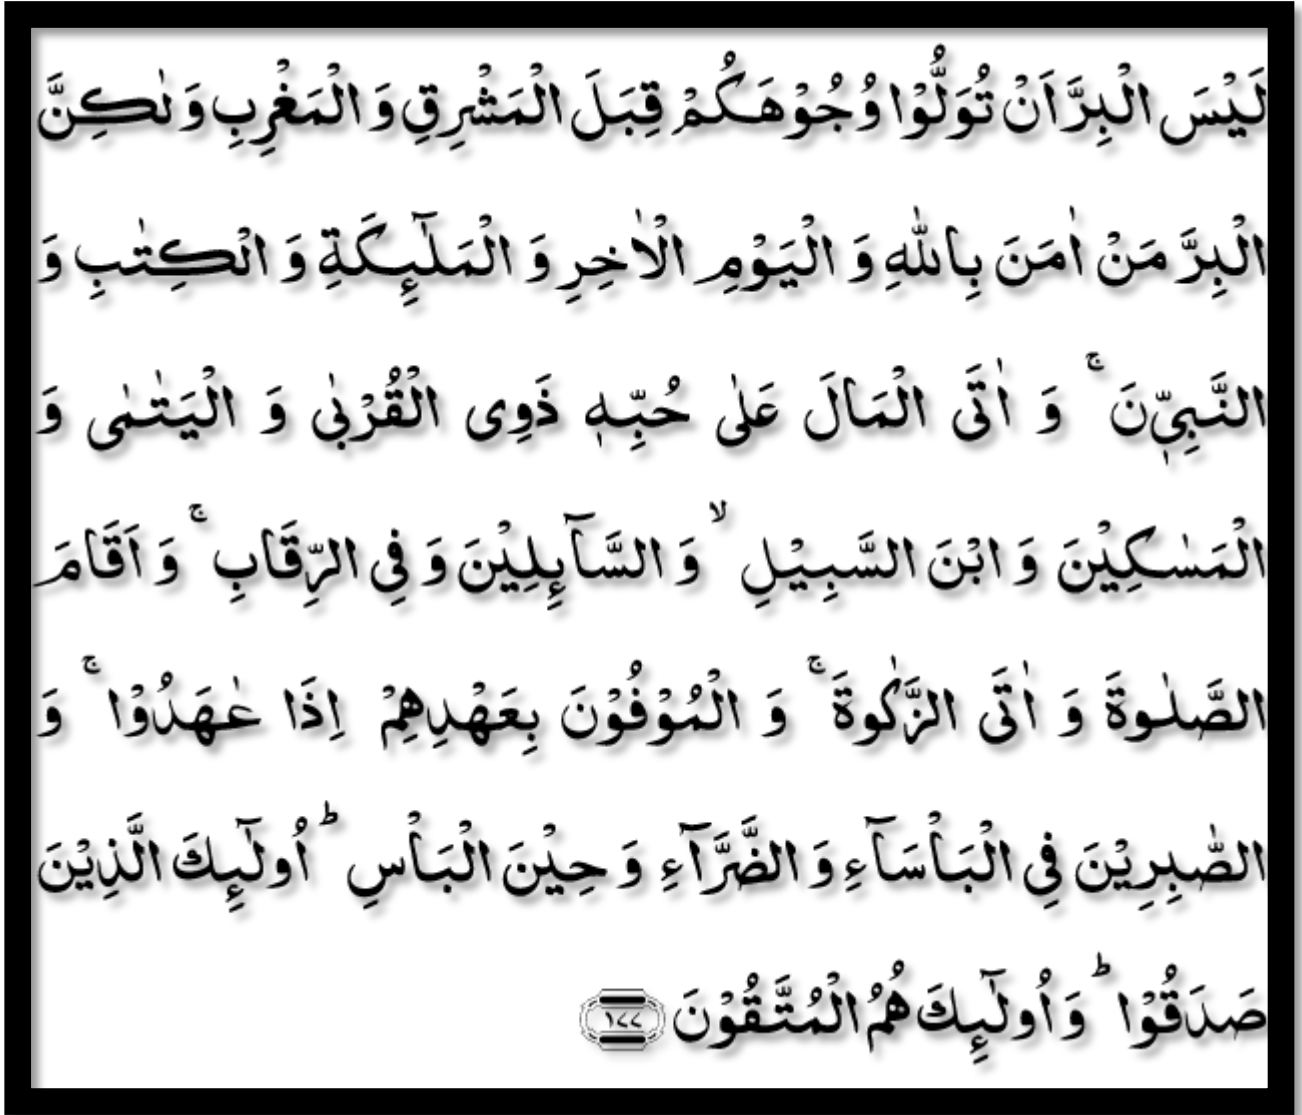 لَيْسَ الْبِرَّ اَنْ تُوَلُّوْا وُجُوْهَكُمْ قِبَلَ الْمَشْرِقِ وَ الْمَغْرِبِ وَ لٰكِنَّ
الْبِرَّ مَنْ اٰمَنَ بِاللّٰهِ وَ الْيَوْمِ الْاٰخِرِ وَ الْمَلٰٓىِٕكَةِ وَ الْكِتٰبِ وَ
النَّبِيّٖنَ ۚ وَ اٰتَى الْمَالَ عَلٰى حُبِّهٖ ذَوِی الْقُرْبٰى وَ الْيَتٰمٰى وَ
الْمَسٰكِيْنَ وَ ابْنَ السَّبِيْلِ ۙ وَ السَّآىِٕلِيْنَ وَ فِی الرِّقَابِ ۚ وَ اَقَامَ
الصَّلٰوةَ وَ اٰتَى الزَّكٰوةَ ۚ وَ الْمُوْفُوْنَ بِعَهْدِهِمْ اِذَا عٰهَدُوْا ۚ وَ
الصّٰبِرِيْنَ فِی الْبَاْسَآءِ وَ الضَّرَّآءِ وَ حِيْنَ الْبَاْسِ ؕ اُولٰٓىِٕكَ الَّذِيْنَ
صَدَقُوْا ؕ وَ اُولٰٓىِٕكَ هُمُ الْمُتَّقُوْنَ ۱۷۷